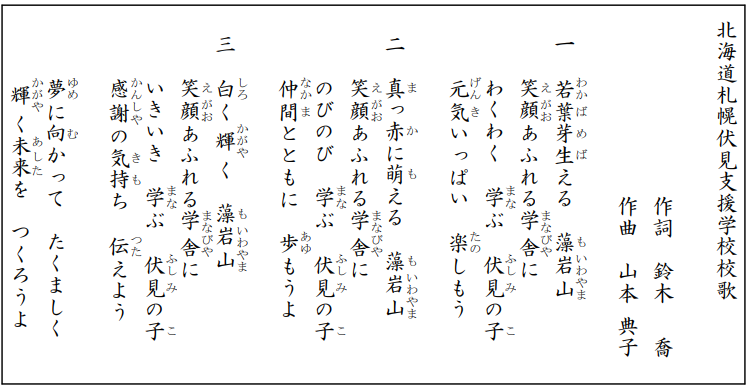 北海道札幌伏見支援学校校歌
作詞 鈴木 喬
作曲 山本 典子
一
若葉芽生える 藻岩山
笑顔あふれる学舎に
わくわく 学ぶ 伏見の子
元気いっぱい 楽しもう
二
真っ赤に萌える 藻岩山
笑顔あふれる学舎に
のびのび 学ぶ 伏見の子
仲間とともに 歩もうよ
三
白く輝く 藻岩山
笑顔あふれる学舎に
いきいき 学ぶ 伏見の子
感謝の気持ち 伝えよう
夢に向かって たくましく
輝く未来を つくろうよ